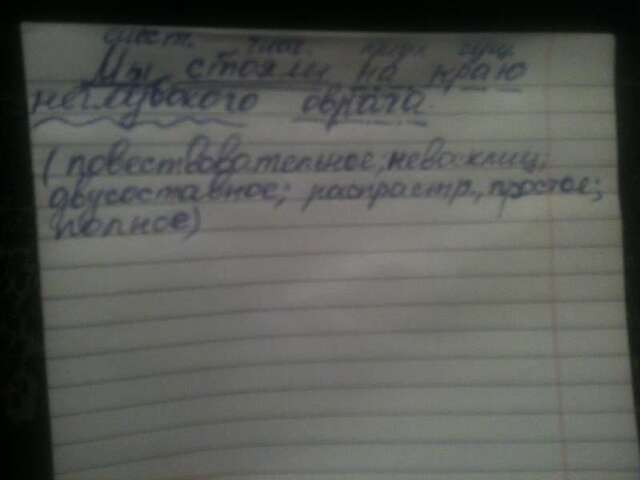 глаг. сущ.
Мы стояли на краю
неглубокого оврага.
(повествовательное, невосклиц.
двусоставное; распрастр., простое;
полное)